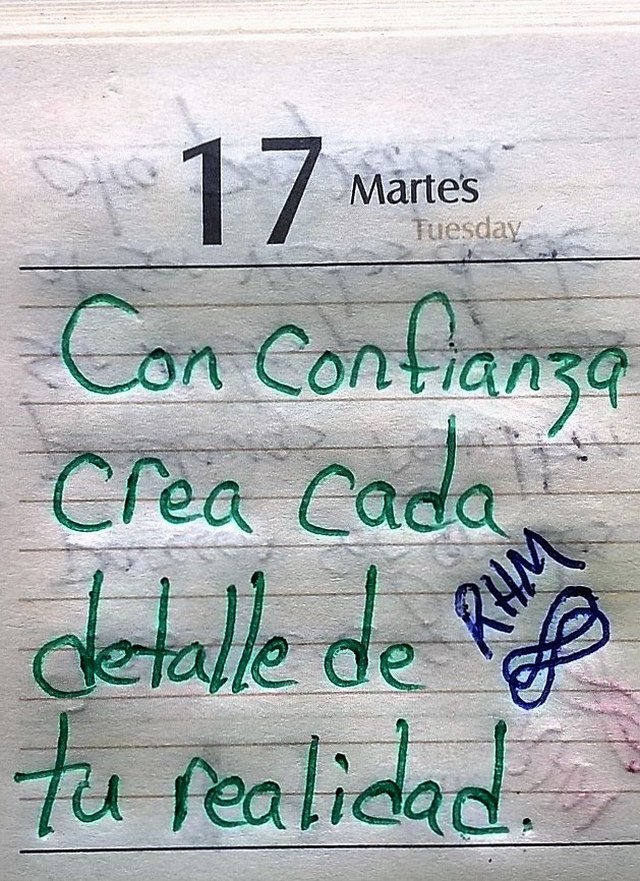 17 Martes
Tuesday
Con confianza
crea cada
detalle de
RHM
tu realidad.